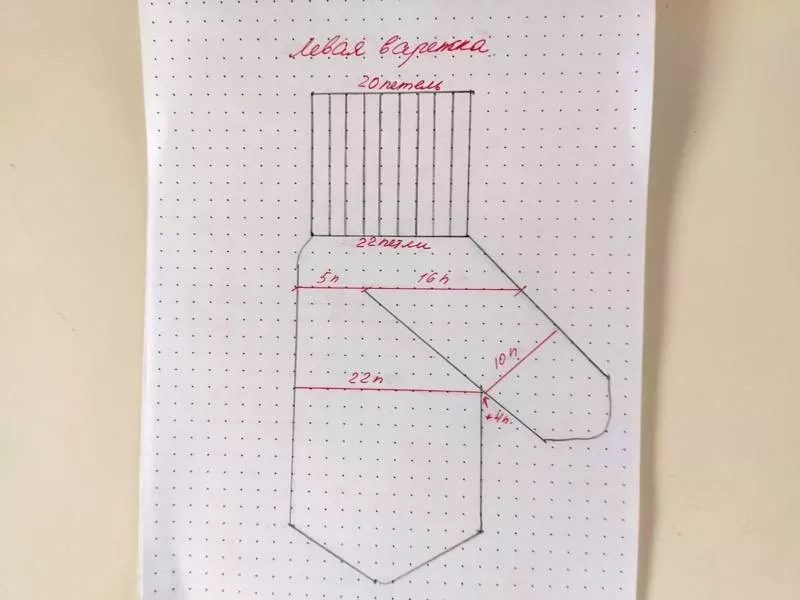 левая варежка
20 петель
22 петли
5п
16п
10п.
22п
+4п.